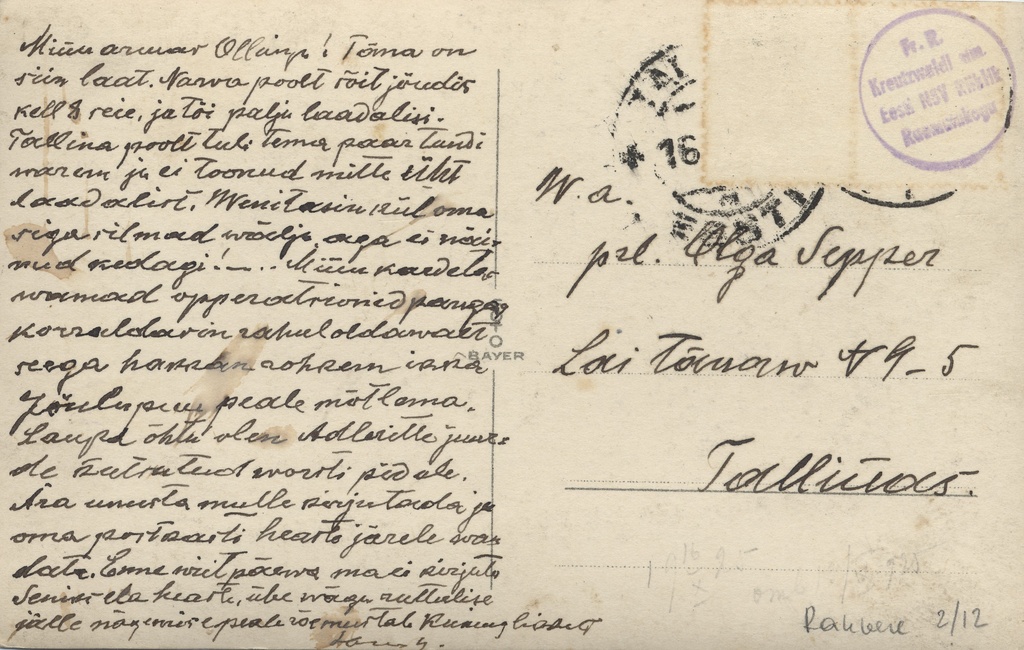 Minu armas Olluny! Täna on
siin laat. Narva poolt rõit jõudis
kell 8 seie, ja tõi palju laadalisi.
Tallina poolt tuli tema paar tundi
warem ja ei toonud mitte üht
laadalist. Wenitasin küll oma
siga silmad wälja, aga ei näi-
nud kedagi! Minu kardeta-
wamad opperatsionid pangas
korraldasin rahuloldawalt
seega hakkan rohkem ikka
Jõulupuu peale mõtlema.
Laupä õhtu olen juur-
de kutsutud worsti pidule.
Ära unusta mulle kirjutada ja
oma postkasti heaste järele waa-
data. Enne wiit päewa ma ei kirjuta
Senni ela heaste, übe wäga ruttulise
jälle nägemise peale rõemustab
W. a.
prl. Olga Sepper
Lai tänaw 49-5
Tallinas.
* 16
EESTI
Fr. R.
Kreutzwaldi nim.
Eesti NSV Riiklik
Raamatukogu
FOTO
BAYER
Rakvere 2/12